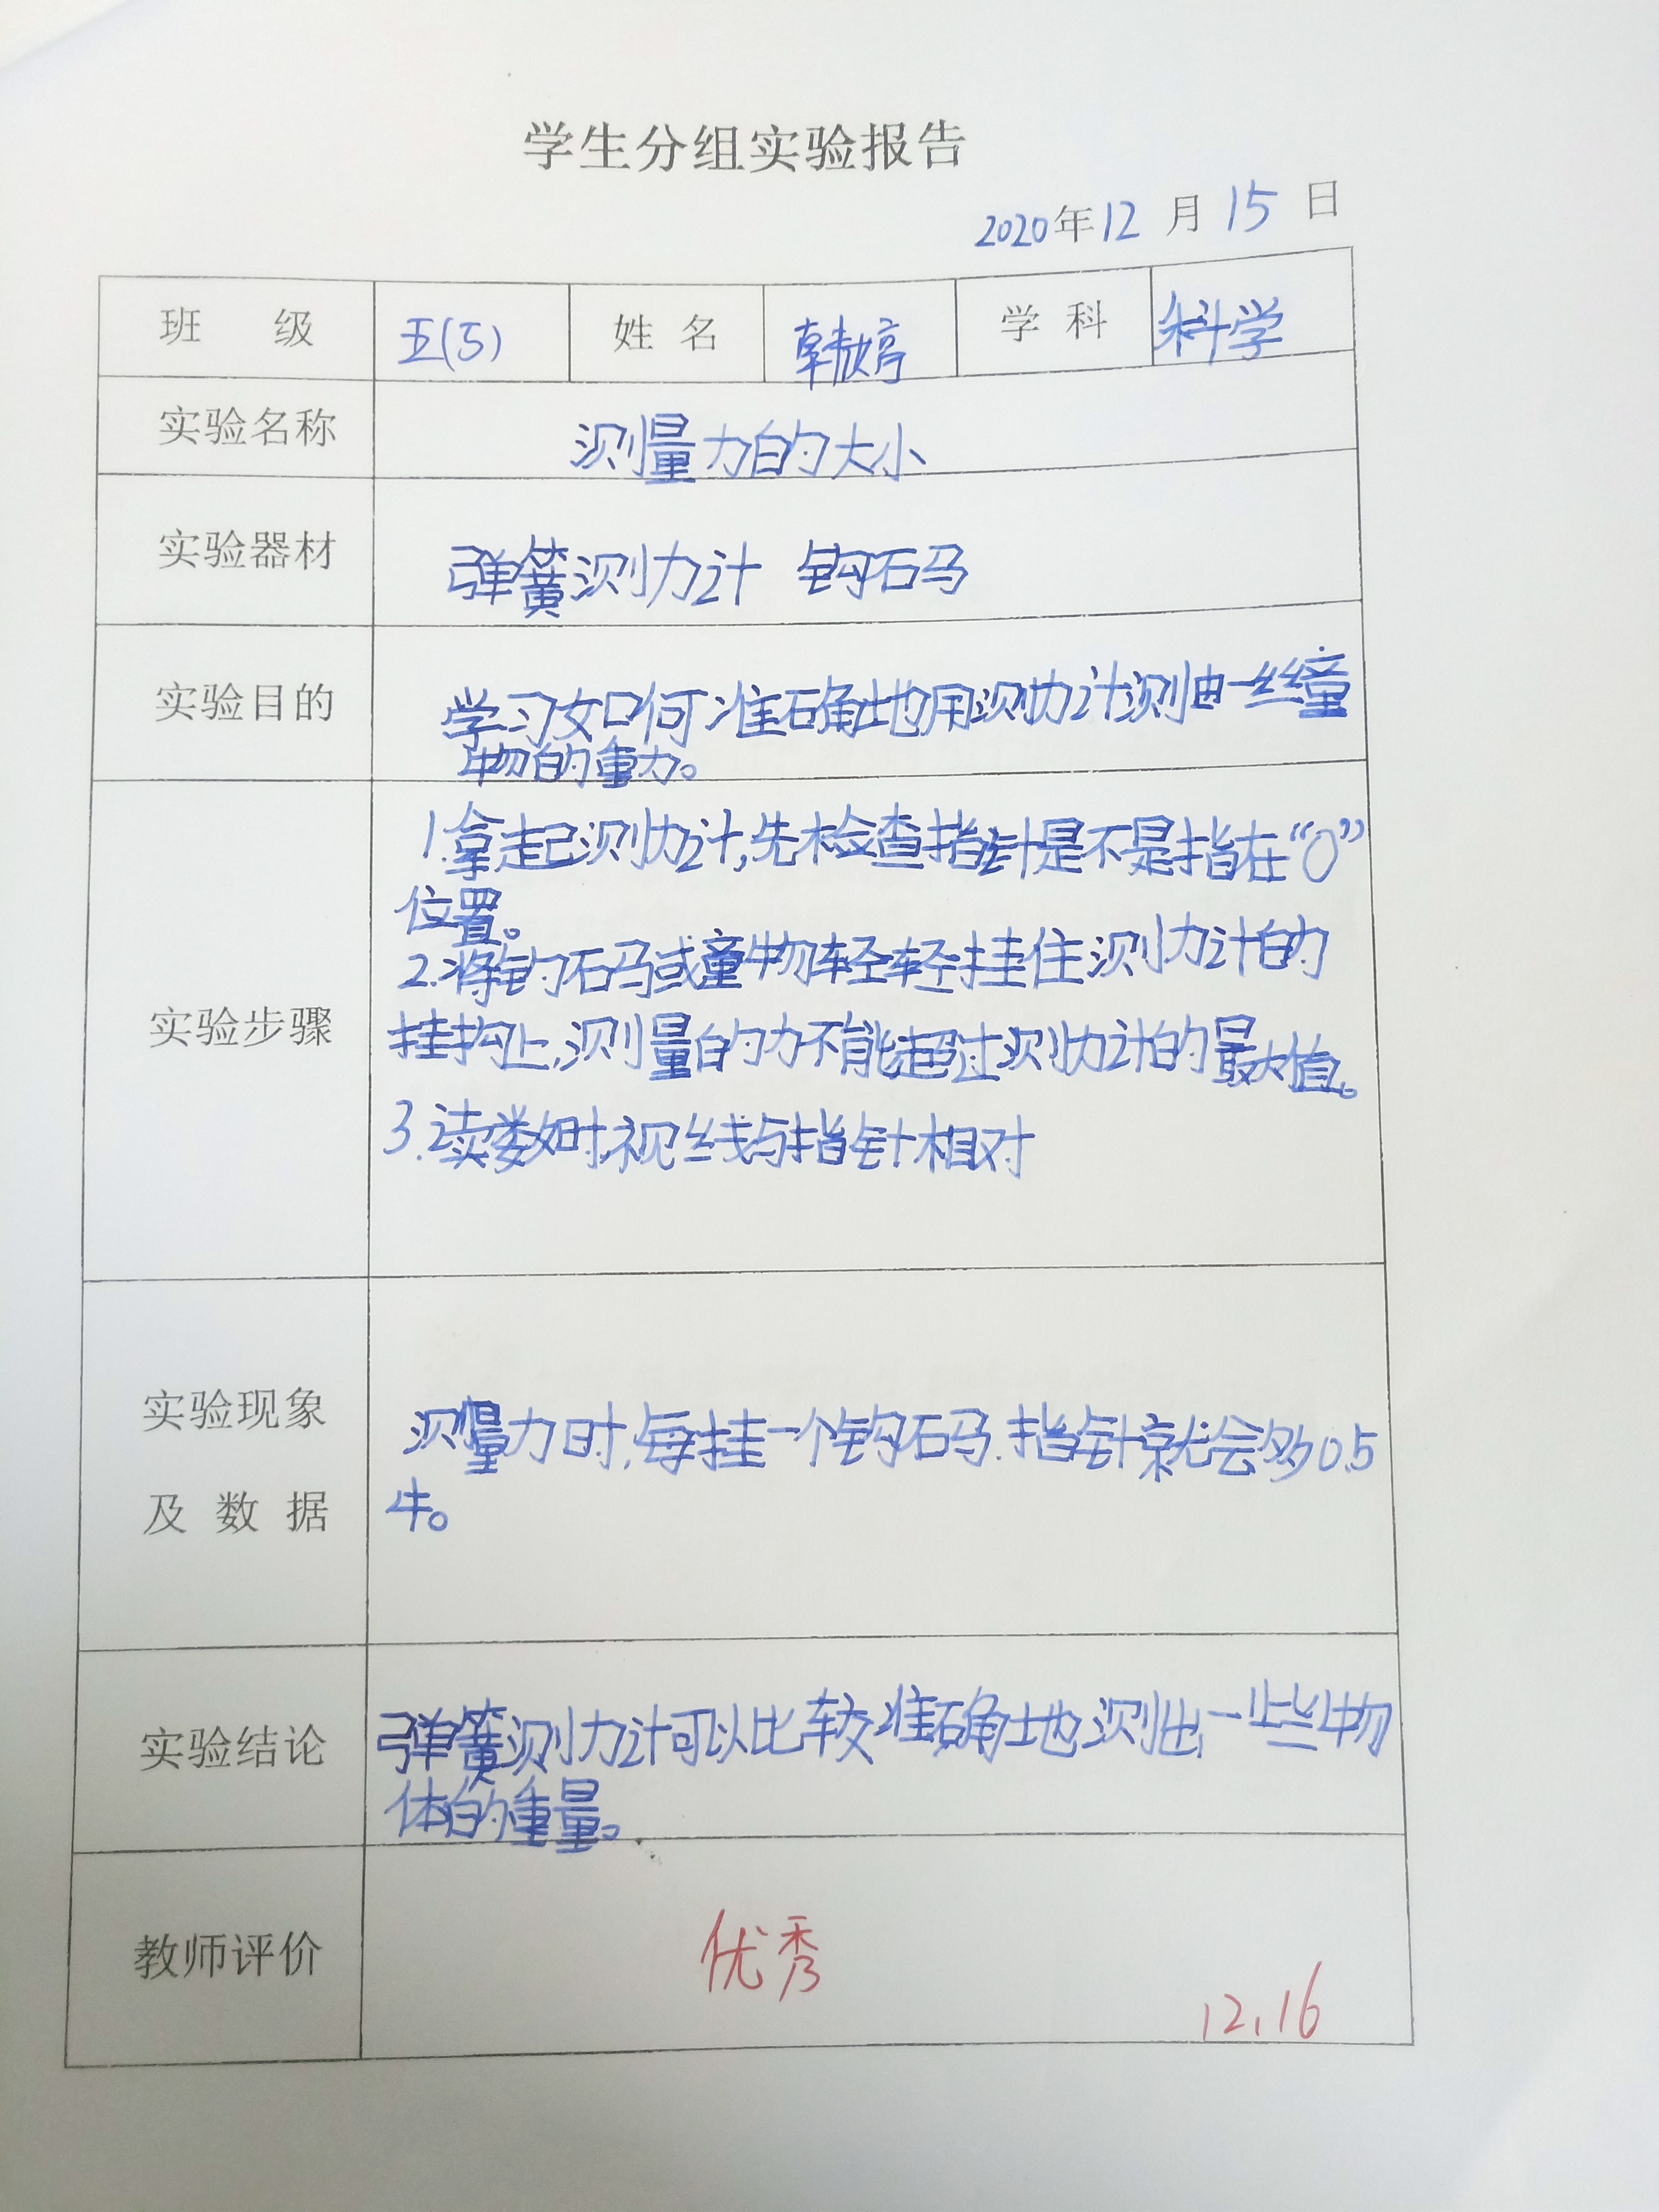 学生分组实验报告
2020年12月15日
班 级 五(5) 姓 名 韩婷 学 科 科学
实验名称 测量力的大小
实验器材 弹簧测力计 钩码
实验目的 学习如何准确地用测力计测出一些重
物的重力。
实验步骤
1.拿起测力计,先检查指针是不是指在“0”
位置。
2.将钩码或重物轻轻挂住测力计的
挂钩上,测量的力不能超过测力计的最大值。
3.读数时,视线与指针相对
实验现象
及 数 据
测量力时,每挂一个钩码.指针就会多0.5
牛。
实验结论 弹簧测力计可以比较准确地测出一些物
体的重量。
教师评价 优秀
12.16